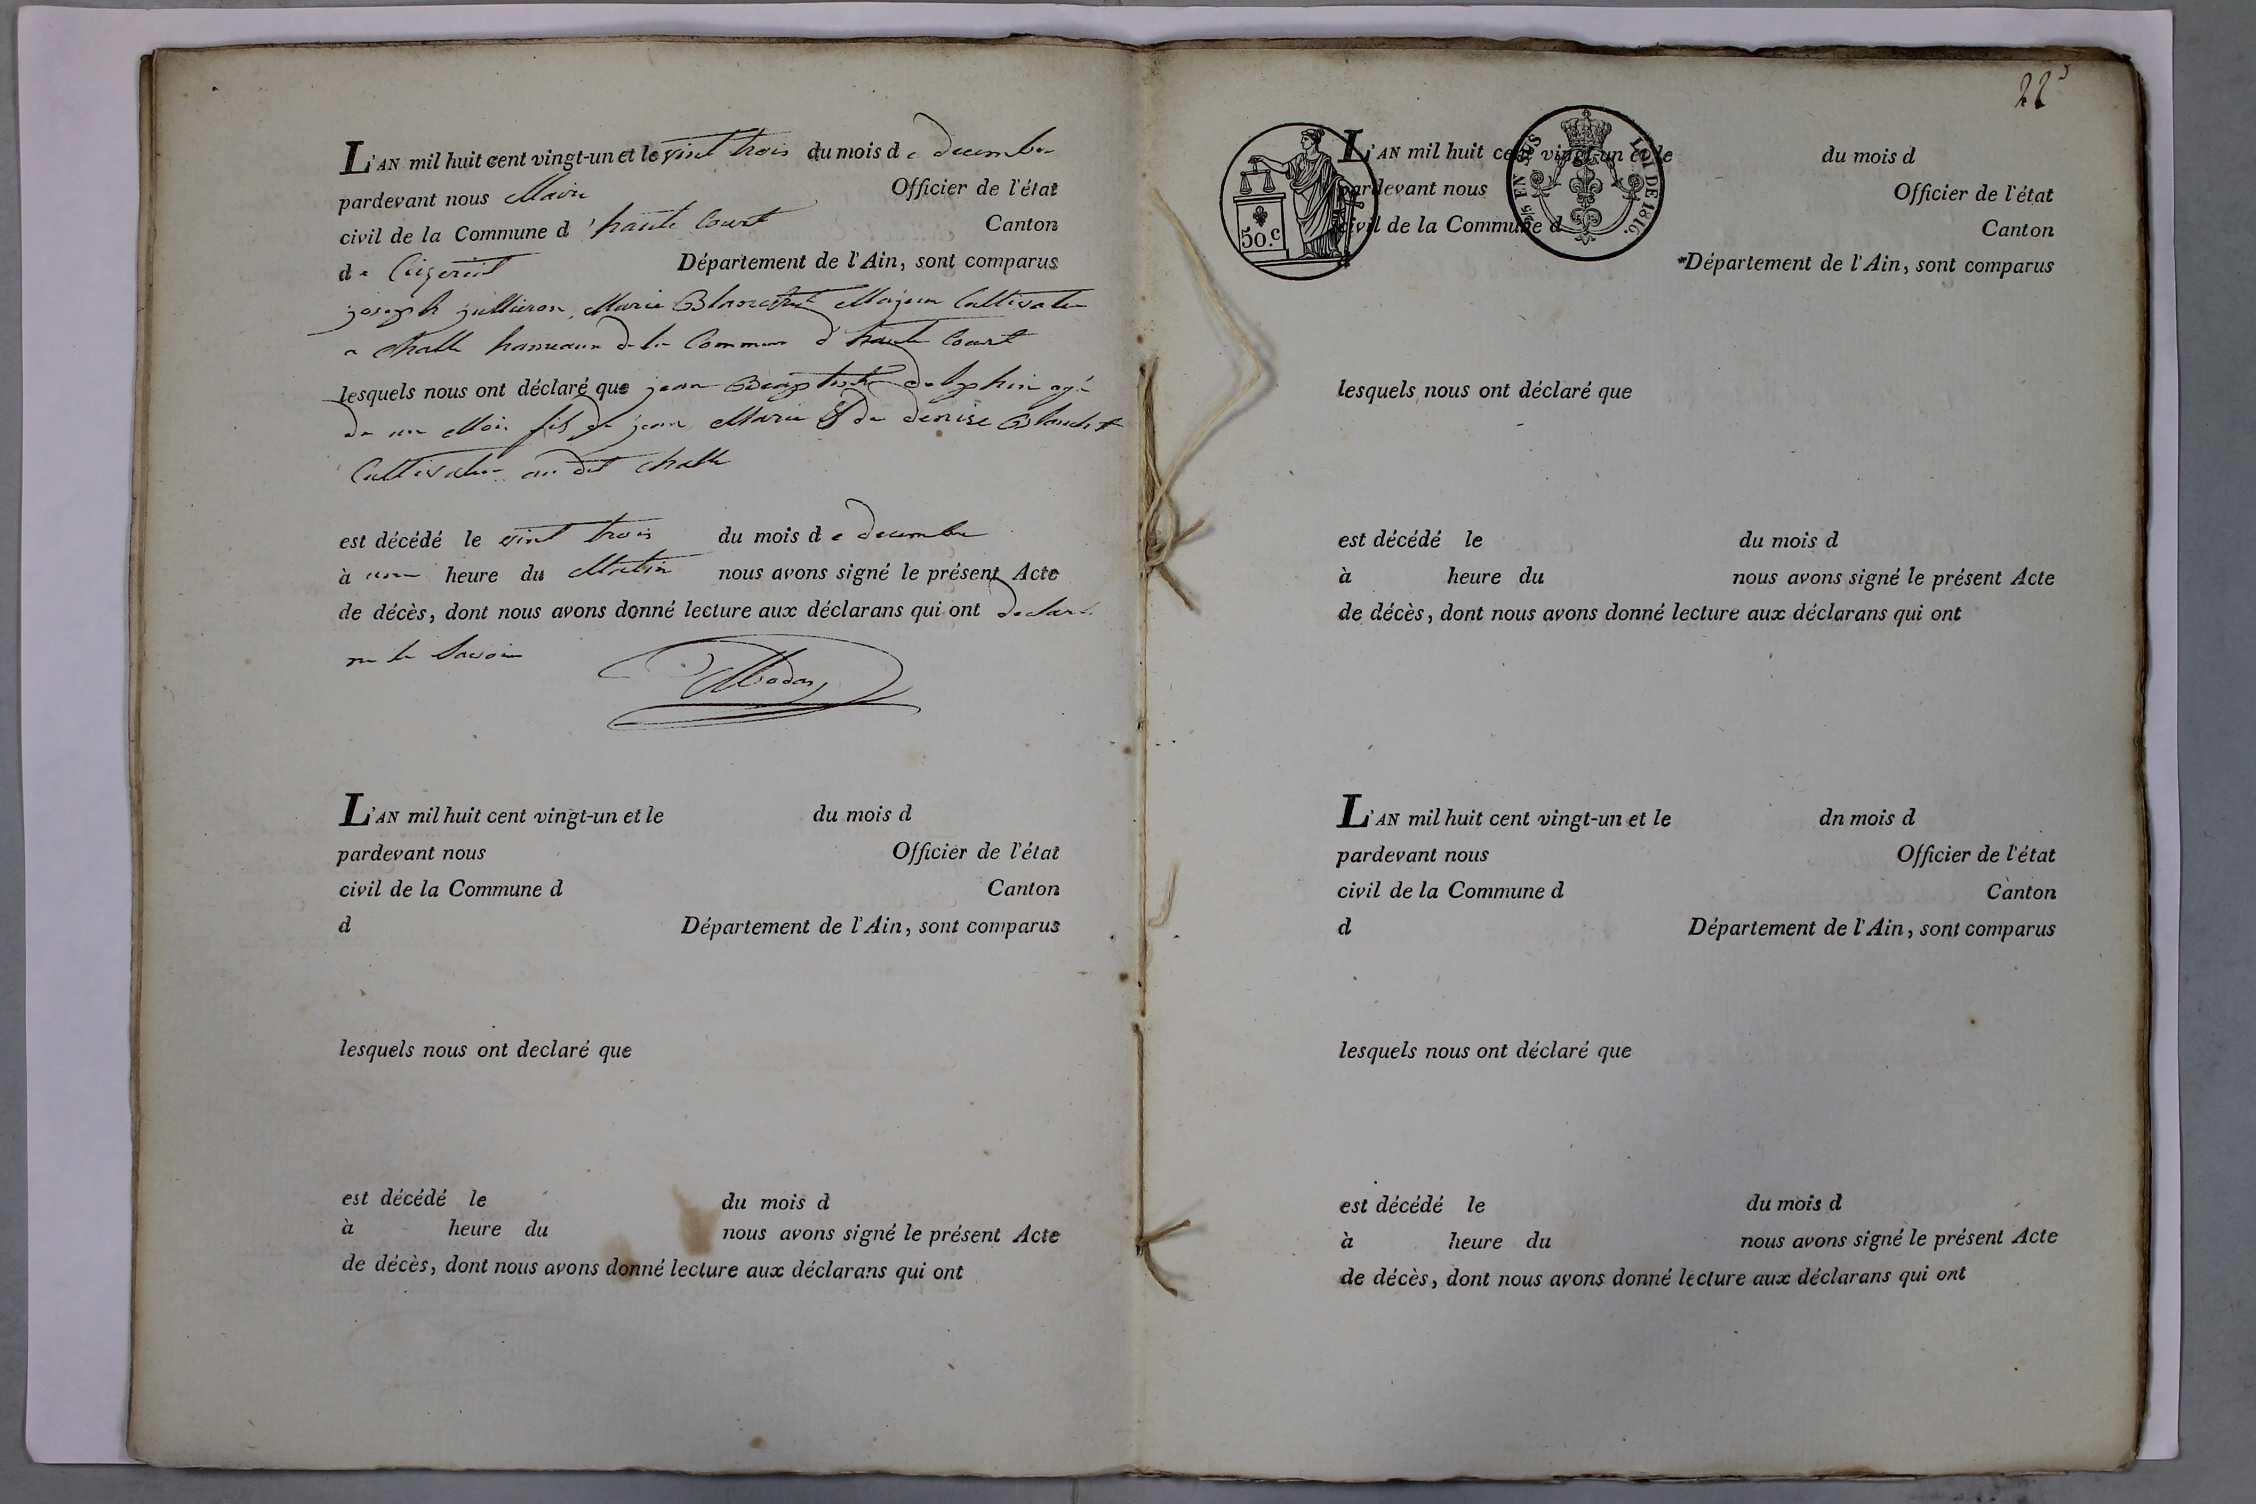 L'AN mil huit cent vingt-un et le vint trois du mois de decembre
pardevant nous Maire Officier de l'état
civil de la Commune d'haute Court Canton
de Ceizeriat Département de l'Ain, sont comparus
joseph jullieron, Marie Blanchet Majeur Cultivateur
a Challe hameaux de la Commune d'haute Court
lesquels nous ont déclaré que jean Baptiste delphin agé
de un Mois fils de jean Marie & de denise Blanchet
Cultivateur au dit Challe
est décédé le vint trois du mois de decembre
à une heure du Matin nous avons signé le présent Acte
de décès, dont nous avons donné lecture aux déclarans qui ont declaré
ne le Savoir
L'AN mil huit cent vingt-un et le du mois d
pardevant nous Officier de l'état
civil de la Commune d Canton
d Département de l'Ain, sont comparus
lesquels nous ont declaré que
est décédé le du mois d
à heure du nous avons signé le présent Acte
de décès, dont nous avons donné lecture aux déclarans qui ont
22
50.C
EN SUS
LOI DE 1816.
L'AN mil huit cent vingt-un et le du mois d
pardevant nous Officier de l'état
civil de la Commune d Canton
d Département de l'Ain, sont comparus
lesquels nous ont déclaré que
est décédé le du mois d
à heure du nous avons signé le présent Acte
de décès, dont nous avons donné lecture aux déclarans qui ont
L'AN mil huit cent vingt-un et le dn mois d
pardevant nous Officier de l'état
civil de la Commune d Canton
d Département de l'Ain, sont comparus
lesquels nous ont déclaré que
est décédé le du mois d
à heure du nous avons signé le présent Acte
de décès, dont nous avons donné lecture aux déclarans qui ont